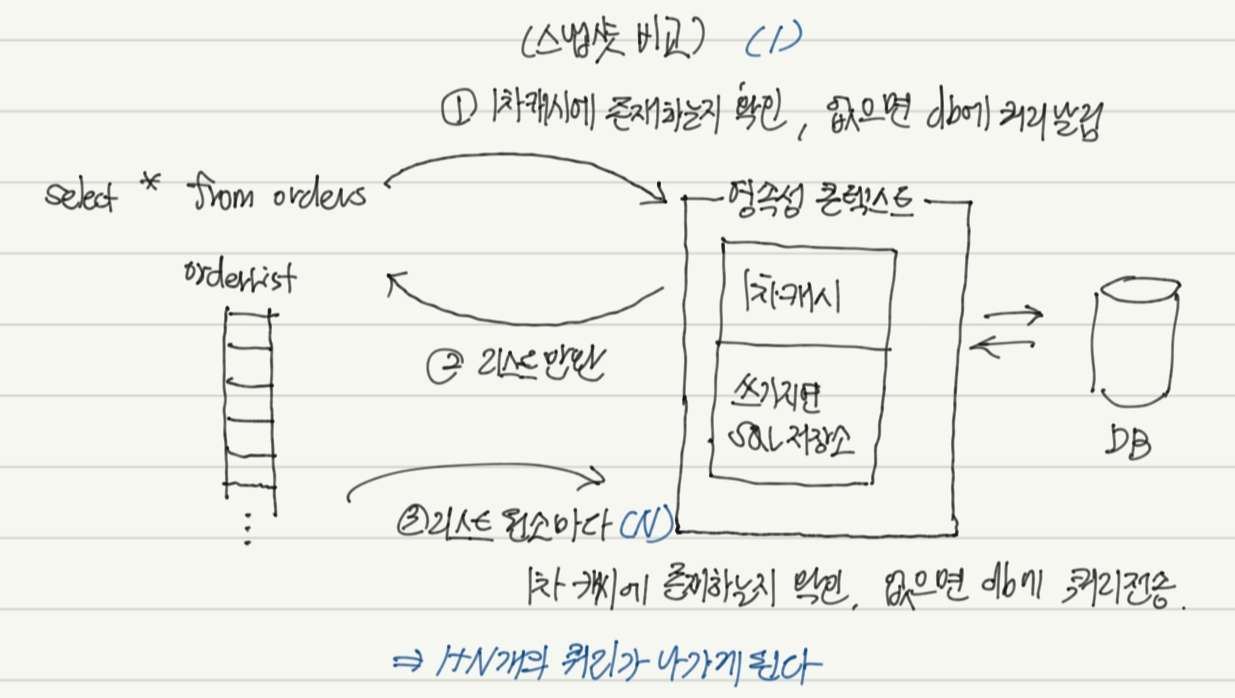 (스냅샷 비교) (1)
① 1차캐시에 존재하는지 확인, 없으면 db에 쿼리날림
select * from orders
영속성 콘텍스트
orderList
1차캐시
② 리스트 반환
쓰기지연
SQL 저장소
DB
③ 리스트 원소마다 (N)
1차 캐시에 존재하는지 확인, 없으면 db에 쿼리전송.
⇒ 1+N개의 쿼리가 나가게 된다